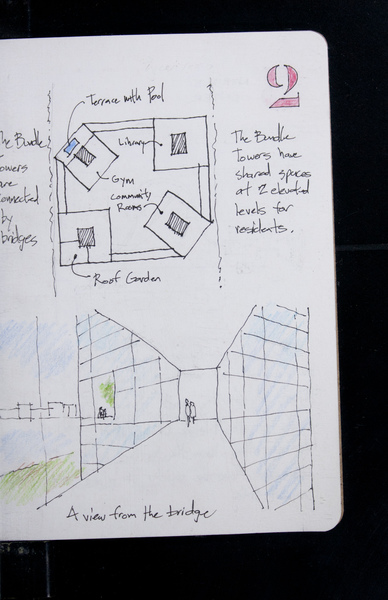 2
Terrace with Pool
The Bundle
Towers
are
connected
by
bridges
Library
Gym
Community
Rooms
Roof Garden
The Bundle
Towers have
shared spaces
at 2 elevated
levels for
residents.
A view from the bridge